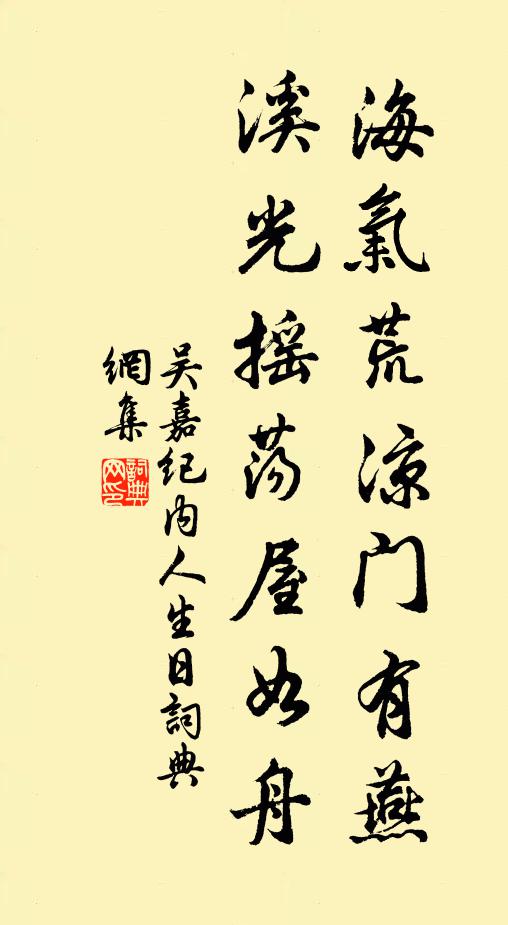 海氣荒涼門有燕
溪光摇荡屋如舟
吴嘉纪内人生日詞典
網集
詞典
网印